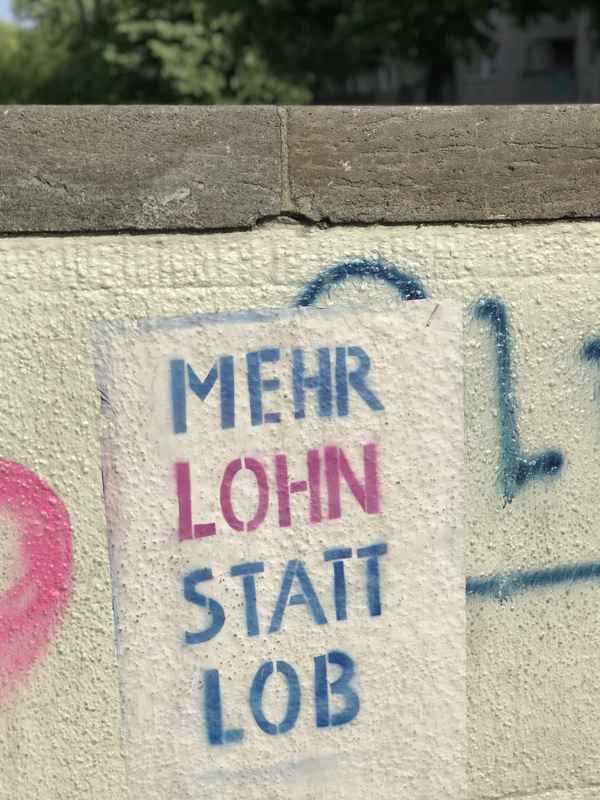 MEHR
LOHN
STATT
LOB